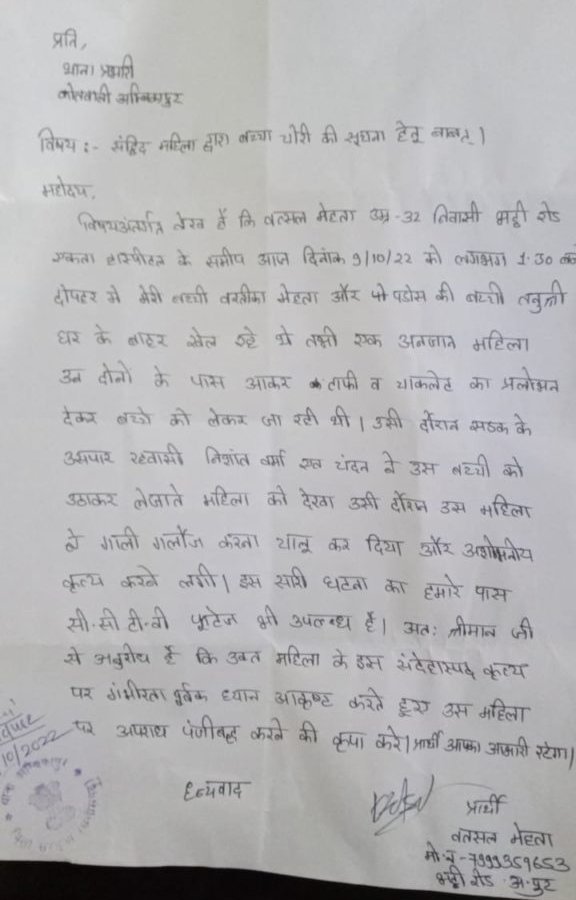 प्रति,
थाना प्रभारी
कोतवाली अम्बिकापुर
विषय :- संदिग्ध महिला द्वारा बच्चा चोरी की सूचना हेतू बाबत् ।
महोदय,
विषयअंतर्गत लेख है कि वत्सल मेहता उम्र -32 निवासी भट्ठी रोड
एकता हास्पीटल के समीप आज दिनांक 9/10/22 को लगभग 1.30 बजे
दोपहर मे मेरी बच्ची मेहता और पडोस की बच्ची
घर के बाहर खेल रहे थे तभी एक अनजान महिला
उन दोनो के पास आकर टाफी व चाकलेट का प्रलोभन
देकर बच्चो को लेकर जा रही थी । उसी दौरान सडक के
उसपार रहवासी निशांत वर्मा एवं चंदन ने उस बच्ची को
उठाकर लेजाते महिला को देखा उसी दौरान उस महिला
ने गाली गलौज करना चालू कर दिया और अशोभनीय
कृत्य करने लगी । इस सारी घटना का हमारे पास
सी.सी टी.वी फूटेज भी उपलब्ध है । अतः श्रीमान जी
से अनुरोध है कि उक्त महिला के इस संदेहास्पद कृत्य
पर गंभीरता पूर्वक ध्यान आकृष्ट करते हुए उस महिला
पर अपराध पंजीबद्ध करने की कृपा करे । प्रार्थी आपका आभारी रहेगा ।
10/2022
धन्यवाद
प्रार्थी
वत्सल मेहता
मो.नं -7999359653
भट्ठी रोड अ.पुर